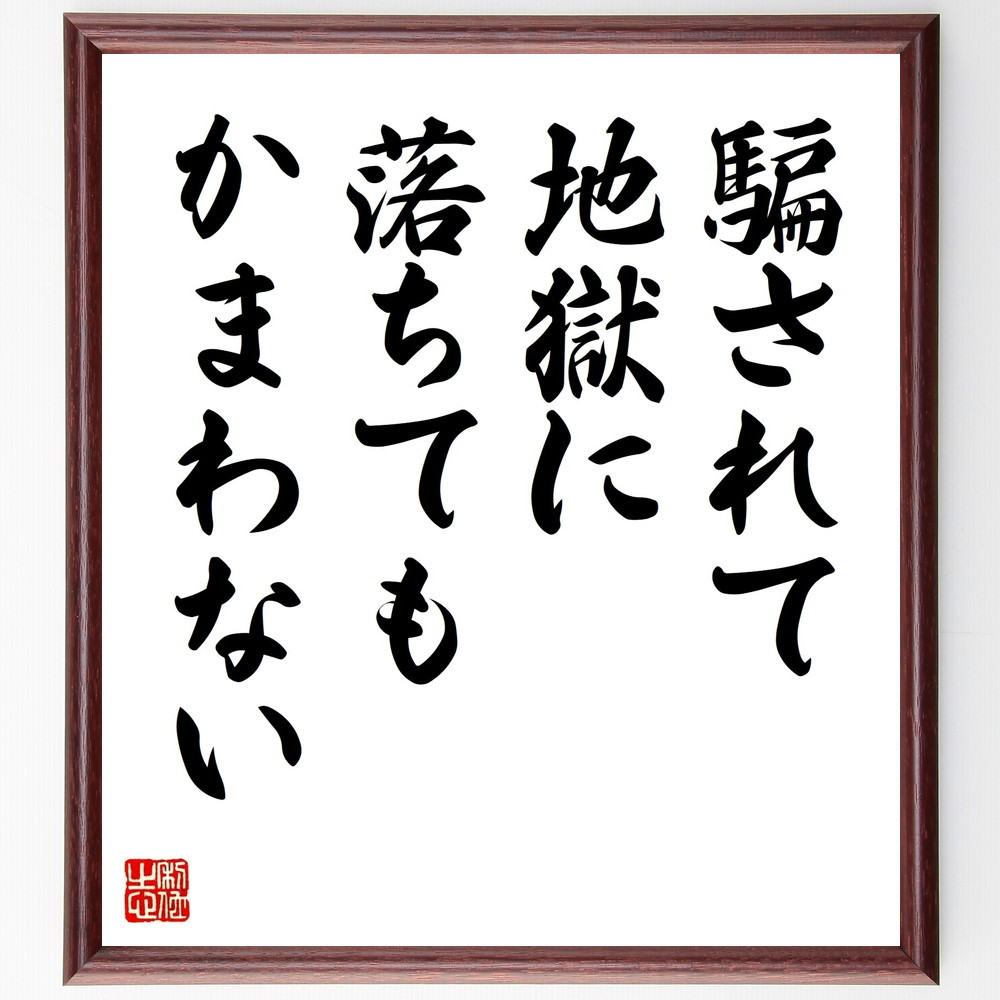 騙されて
地獄に
落ちても
かまわない